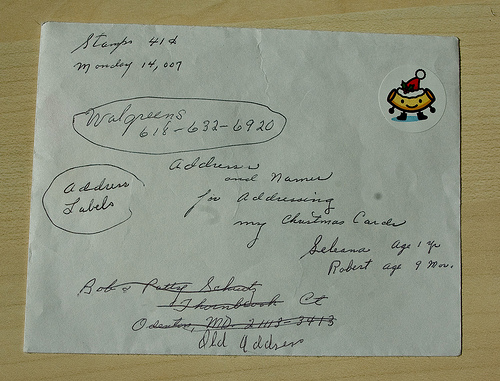 Stamps 41¢
Monday 14, 007
Walgreens
618-632-6920
Address
and Names
for Addressing
my Christmas Cards
Address
Labels
Selena age 1 yr
Robert age 9 Mon.
Bob & Patty
Thornbrook Ct
Odenton, MD 21113-3413
Old Address